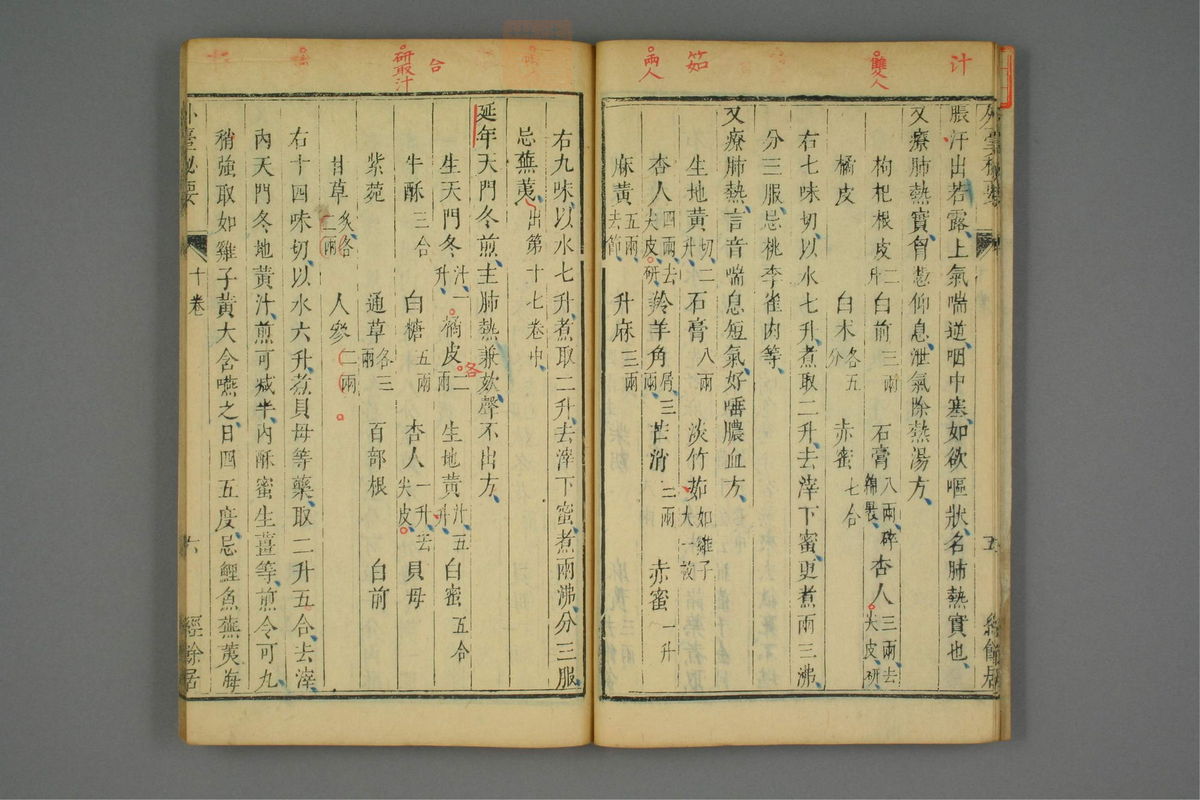 汁
雙人
茹
兩人
脹汗出若露上氣喘逆咽中塞如欲嘔狀名肺熱實也
又療肺熱實胷慿仰息泄氣除熱湯方
枸杞根皮二升 白前三兩 石膏八兩碎綿畏 杏人三兩去尖皮研
橘皮 白术各五分 赤蜜七合
右七味切以水七升煮取二升去滓下蜜更煮兩三沸
分三服忌桃李雀肉等
又療肺熱言音喘息短氣好唾膿血方
生地黄切二升 石膏八兩 淡竹茹如雞子大一枚
杏人四兩去尖皮研 羚羊角屑三兩 芒消二兩 赤蜜一升
麻黄五兩去節 升麻三兩
合
研取汁
右九味以水七升煮取二升去滓下蜜煮兩沸分三服
忌蕪荑出第十七卷中
延年天門冬煎主肺熱兼欬聲不出方
生天門冬汁一升 橘皮二兩 生地黄汁五升 白蜜五合
各
牛酥三合 白糖五兩 杏人一升去尖皮 貝母
紫菀 通草各三兩 百部根 白前
甘草炙各二兩 人參二兩
右十四味切以水六升煮貝母等藥取二升五合去滓
內天門冬地黄汁煎可减半內酥蜜生薑等煎令可丸
稍強取如雞子黄大含嚥之日四五度忌鯉魚蕪荑海
外臺秘要 十卷 六 經餘居